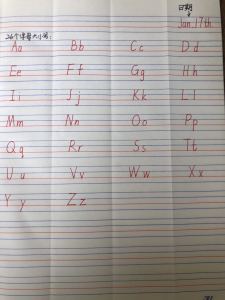 日期
Jan.17th.
26个字母大小写:
Aa Bb Cc Dd
Ee Ff Gg Hh
Ii Jj Kk Ll
Mm Nn Oo Pp
Qq Rr Ss Tt
Uu Vv Ww Xx
Yy Zz